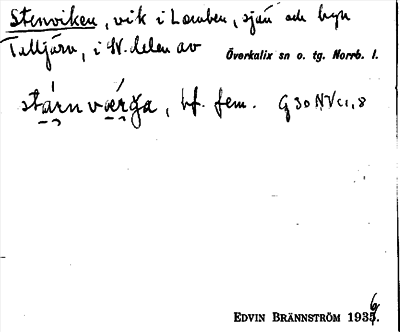 Stenviken, vik i Lomben, sjön och byn
Talljärv, i N. delen av
Överkalix sn o. tg. Norrb. l.
stárnværga, bf. fem.
EDVIN BRÄNNSTRÖM 1936.